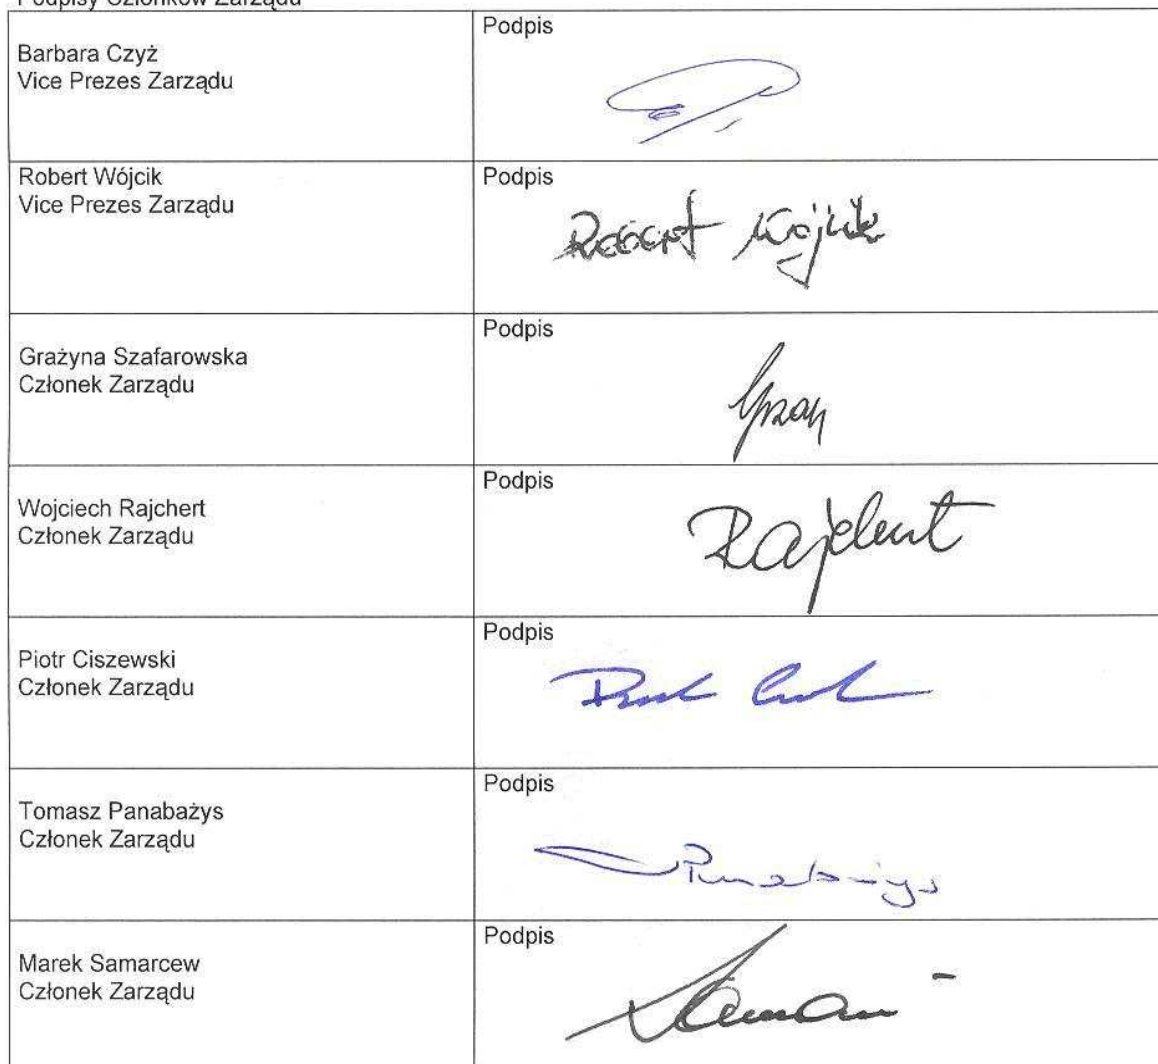 Podpisy Członków Zarządu
Barbara Czyż
Vice Prezes Zarządu
Podpis
Robert Wójcik
Vice Prezes Zarządu
Podpis
Robert Wójcik
Grażyna Szafarowska
Członek Zarządu
Podpis
Wojciech Rajchert
Członek Zarządu
Podpis
Rajchert
Piotr Ciszewski
Członek Zarządu
Podpis
Tomasz Panabażys
Członek Zarządu
Podpis
Marek Samarcew
Członek Zarządu
Podpis